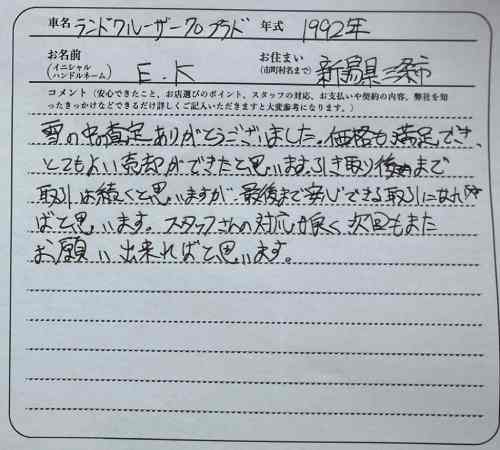 車名 ランドクルーザー70プラド 年式 1992年
お名前 (イニシャル ハンドルネーム) E.K お住まい (市町村名まで) 新潟県三条市
コメント（安心できたこと、お店選びのポイント、スタッフの対応、お支払いや契約の内容、弊社を知
ったきっかけなどできるだけ詳しくご記入いただきますと大変参考になります。）
雪の中査定ありがとうございました。価格も満足でき、
とてもよい売却ができたと思います。引き取り後まで
取引は続くと思いますが、最後まで安心できる取引になれ
ばと思います。スタッフさんの対応が良く次回もまた
お願い出来ればと思います。